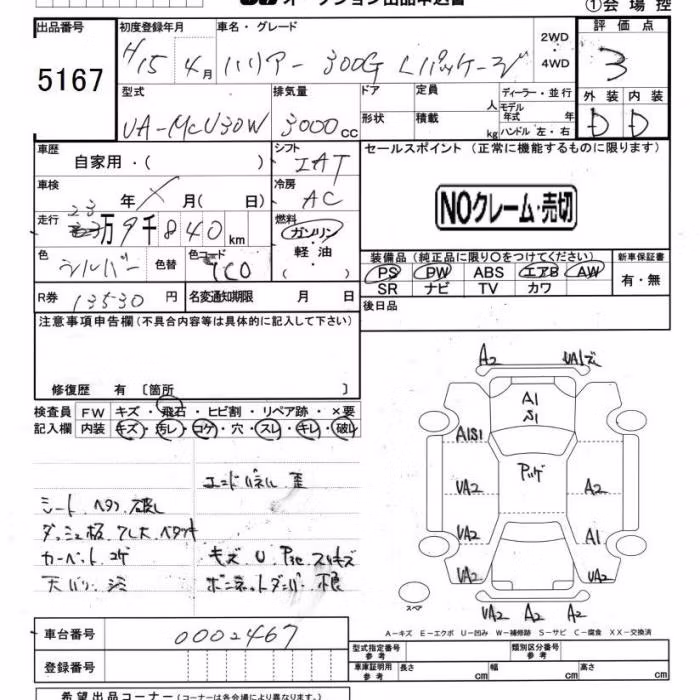 オークション出品申込書
①会場控
出品番号
5167
初度登録年月
H15 4月
車名・グレード
ハリアー 300G Lパッケージ
2WD
4WD
評価点
3
外装 内装
D D
型式
UA-MCU30W
排気量
3000cc
ドア
形状
定員
人
積載
kg
ディーラー・並行
モデル年式 年
ハンドル 左・右
車歴
自家用・( )
車検
年 月( 日)
走行
23万9千840km
色
シルバー
色替
色コード
1C0
シフト
IAT
冷房
AC
燃料
ガソリン
軽油
( )
R券
13530円
名変通知期限 月 日
セールスポイント(正常に機能するものに限ります)
NOクレーム・売切
装備品(純正品に限り〇をつけてください)
PS PW ABS エアB AW
SR ナビ TV カワ
新車保証書
有・無
後日品
注意事項申告欄(不具合内容等は具体的に記入して下さい)
修復歴 有〔箇所 〕
検査員記入欄
FW キズ・飛石・ヒビ割・リペア跡・×要
内装 キズ・汚レ・コゲ・穴・スレ・キレ・破レ
エンドパネル 歪
シート ヘタリ 破レ
カーペット コゲ
天バリ シミ
A2
A1
S1
A1S1
UA2
A2
UA2
A1
UA2
UA2
UA2 A2 A2
スペア
A-キズ E-エクボ U-凹み W-補修跡 S-サビ C-腐食 XX-交換済
車台番号
0002467
登録番号
型式指定番号
参考
類別区分番号
参考
車庫証明用
参考
長さ cm
幅 cm
高さ cm
希望出品コーナー(コーナーは各会場により異なります。)